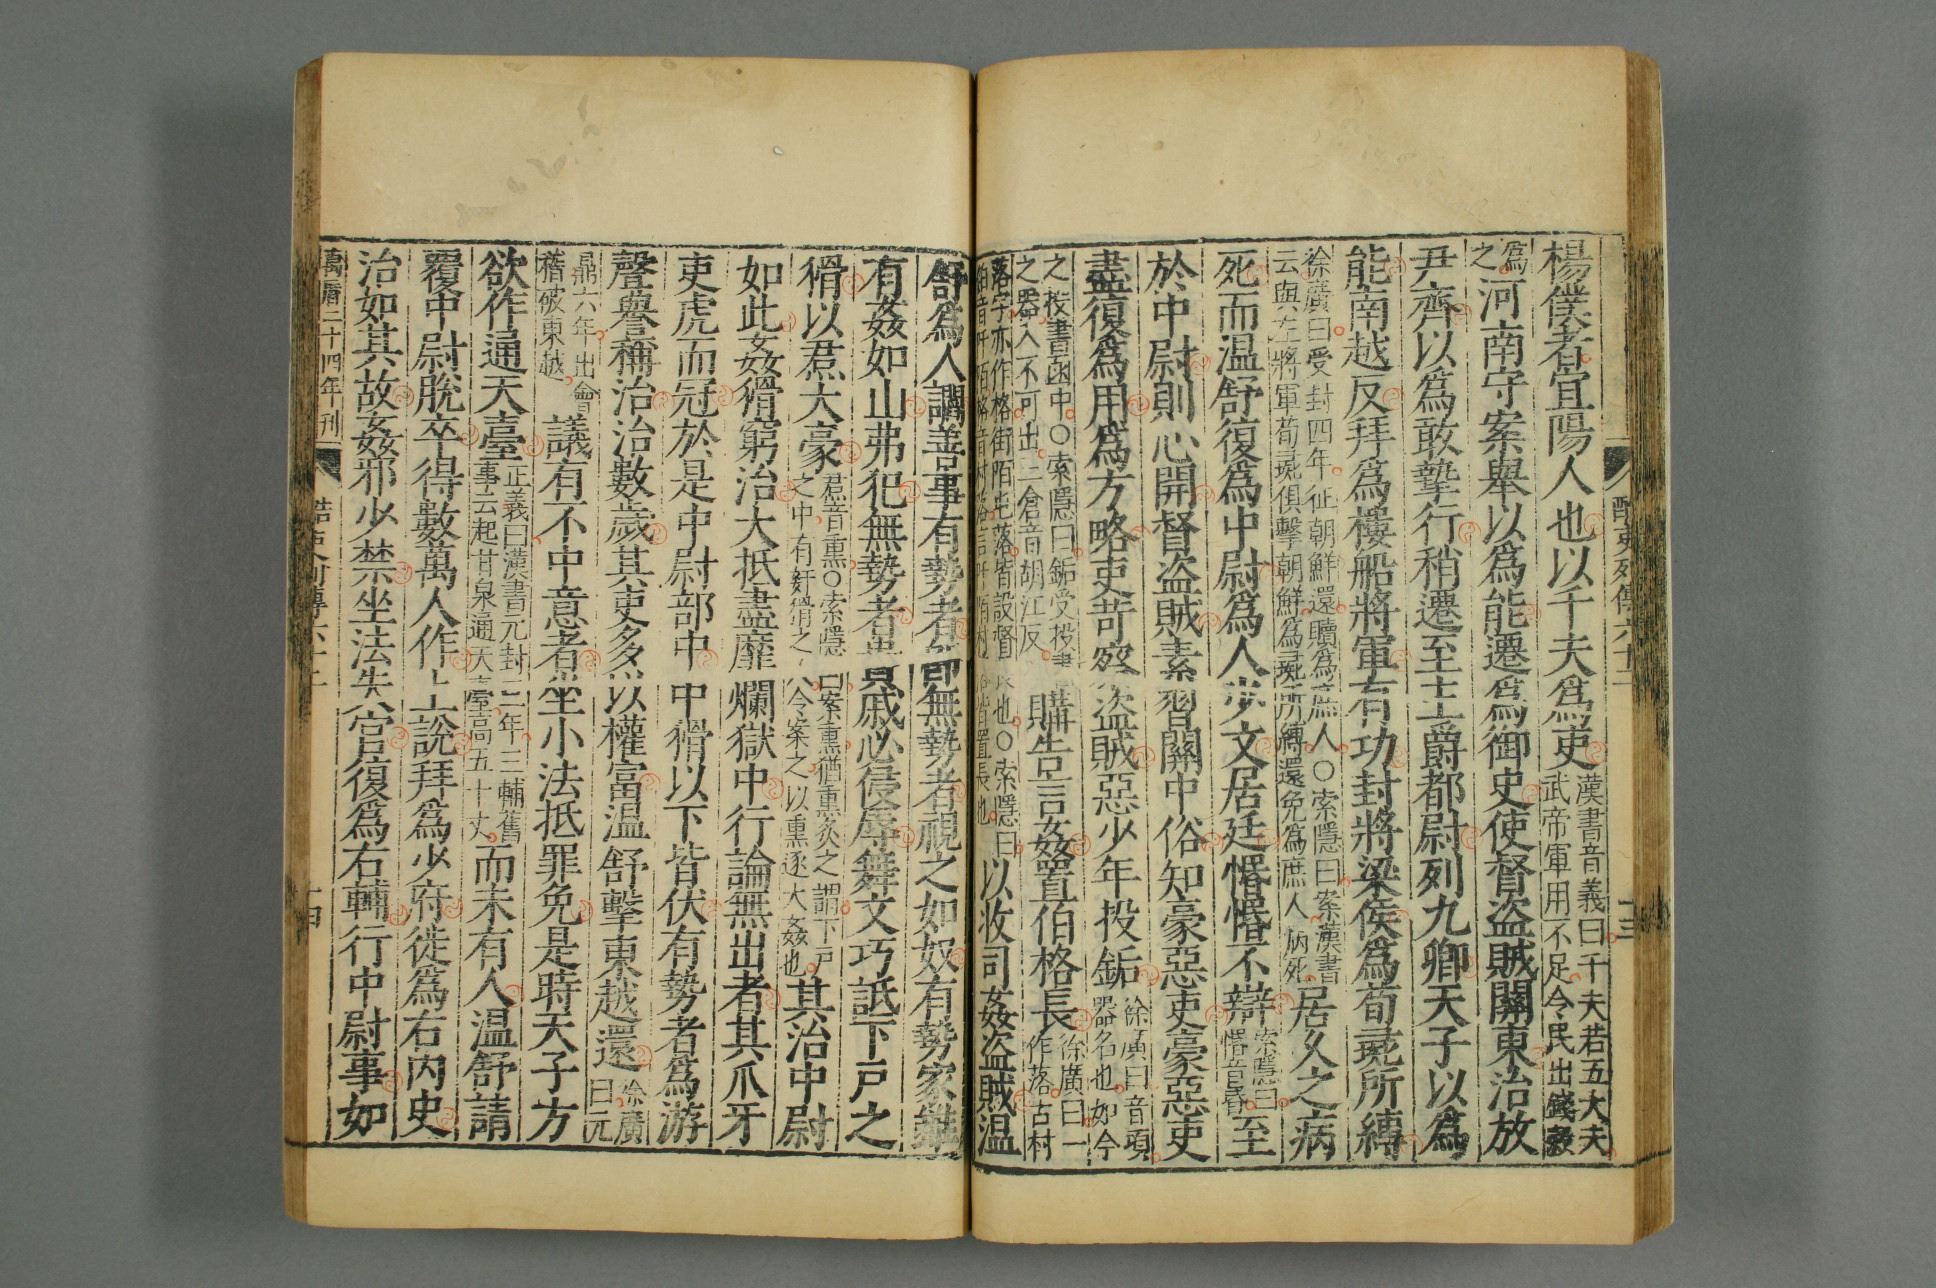 酷吏列傳六十二
十三
楊僕者宜陽人也以千夫爲吏漢書音義曰千夫若五大夫武帝軍用不足令民出錢穀
爲之河南守案舉以爲能遷爲御史使督盜賊關東治放
尹齊以爲敢摯行稍遷至主爵都尉列九卿天子以爲
能南越反拜爲樓船將軍有功封將梁侯爲荀彘所縛
徐廣曰受封四年征朝鮮還贖爲庶人○索隱曰案漢書云與左將軍荀彘俱擊朝鮮爲彘所縛還免爲庶人病死居久之病
死而温舒復爲中尉爲人少文居廷惛惛不辯索隱曰惛音昬至
於中尉則心開督盜賊素習關中俗知豪惡吏豪惡吏
盡復爲用爲方略吏苛察盜賊惡少年投缿徐廣曰音項器名也如今
之投書函中○索隱曰缿受投書之器入不可出三倉音胡江反購告言姦置伯格長徐廣曰一作落古村
落字亦作格街陌屯落皆設督長也○索隱曰伯音阡陌格音村落言阡陌村落皆置長也以收司姦盜賊温
舒爲人讇善事有勢者即無勢者視之如奴有勢家雖
有姦如山弗犯無勢者貴戚必侵辱舞文巧詆下戶之
猾以焄大豪焄音熏○索隱曰案熏猶熏炙之謂下戶之中有奸猾之人令案之以熏逐大姦也其治中尉
如此姦猾窮治大抵盡靡爛獄中行論無出者其爪牙
吏虎而冠於是中尉部中中猾以下皆伏有勢者爲游
聲譽稱治治數歲其吏多以權富温舒擊東越還徐廣曰元
鼎六年出會稽破東越議有不中意者坐小法抵罪免是時天子方
欲作通天臺正義曰漢書元封二年三輔舊事云起甘泉通天臺高五十丈而未有人温舒請
覆中尉脫卒得數萬人作上說拜爲少府徙爲右內史
治如其故姦邪少禁坐法失官復爲右輔行中尉事如
萬曆二十四年刊
酷吏列傳六十二
十四